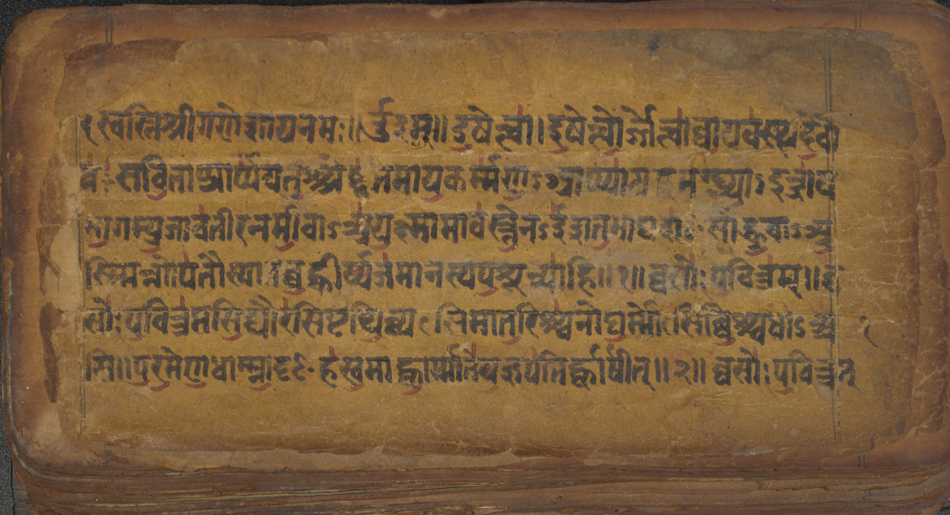 स्वस्तिश्रीगणेशायनमः॥ ॐ३म्॥ इषेत्त्वा। इषेत्त्वोर्ज्जेत्त्वाव्वायवस्त्थदेवो
वः सविताप्प्रार्प्पयतुश्श्रेष्ठ्ठतमायकर्म्मणऽआप्यायद्ध्वमग्घ्न्याऽइन्द्राय
भागम्प्रजावतीरनमीवाऽअयक्ष्मामावस्तेनऽईशतमाघशᳪसोद्ध्रुवाऽअ
स्म्मिन्नगोपतौस्यातबह्वीर्य्यजमानस्यपशून्न्पाहि॥१॥ व्वसोः पवित्रम्॥ व
सोः पवित्रमसिद्यौरसिपृथिव्यसिमातरिश्श्वनोघर्म्मोसिविश्श्वधाऽअ
सि॥ परमेणधाम्म्नादृᳪहस्वमाह्वार्म्मातेयज्ञपतिर्ह्वार्षीत्॥२॥ व्वसोः पवित्रम्